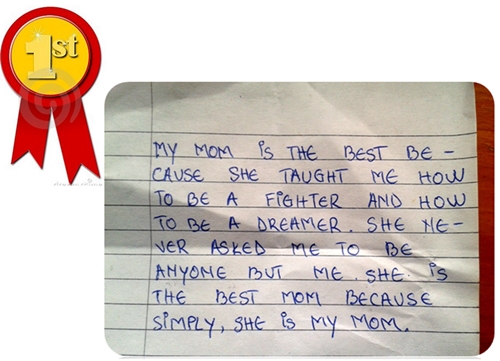 1st
MY MOM iS THE BEST BE -
CAUSE SHE TAUGHT ME HOW
TO BE A FiGHTER AND HOW
TO BE A DREAMER. SHE NE -
VER ASKED ME TO BE
ANYONE BUT ME. SHE iS
THE BEST MOM BECAUSE
SiMPLY, SHE iS MY MOM.